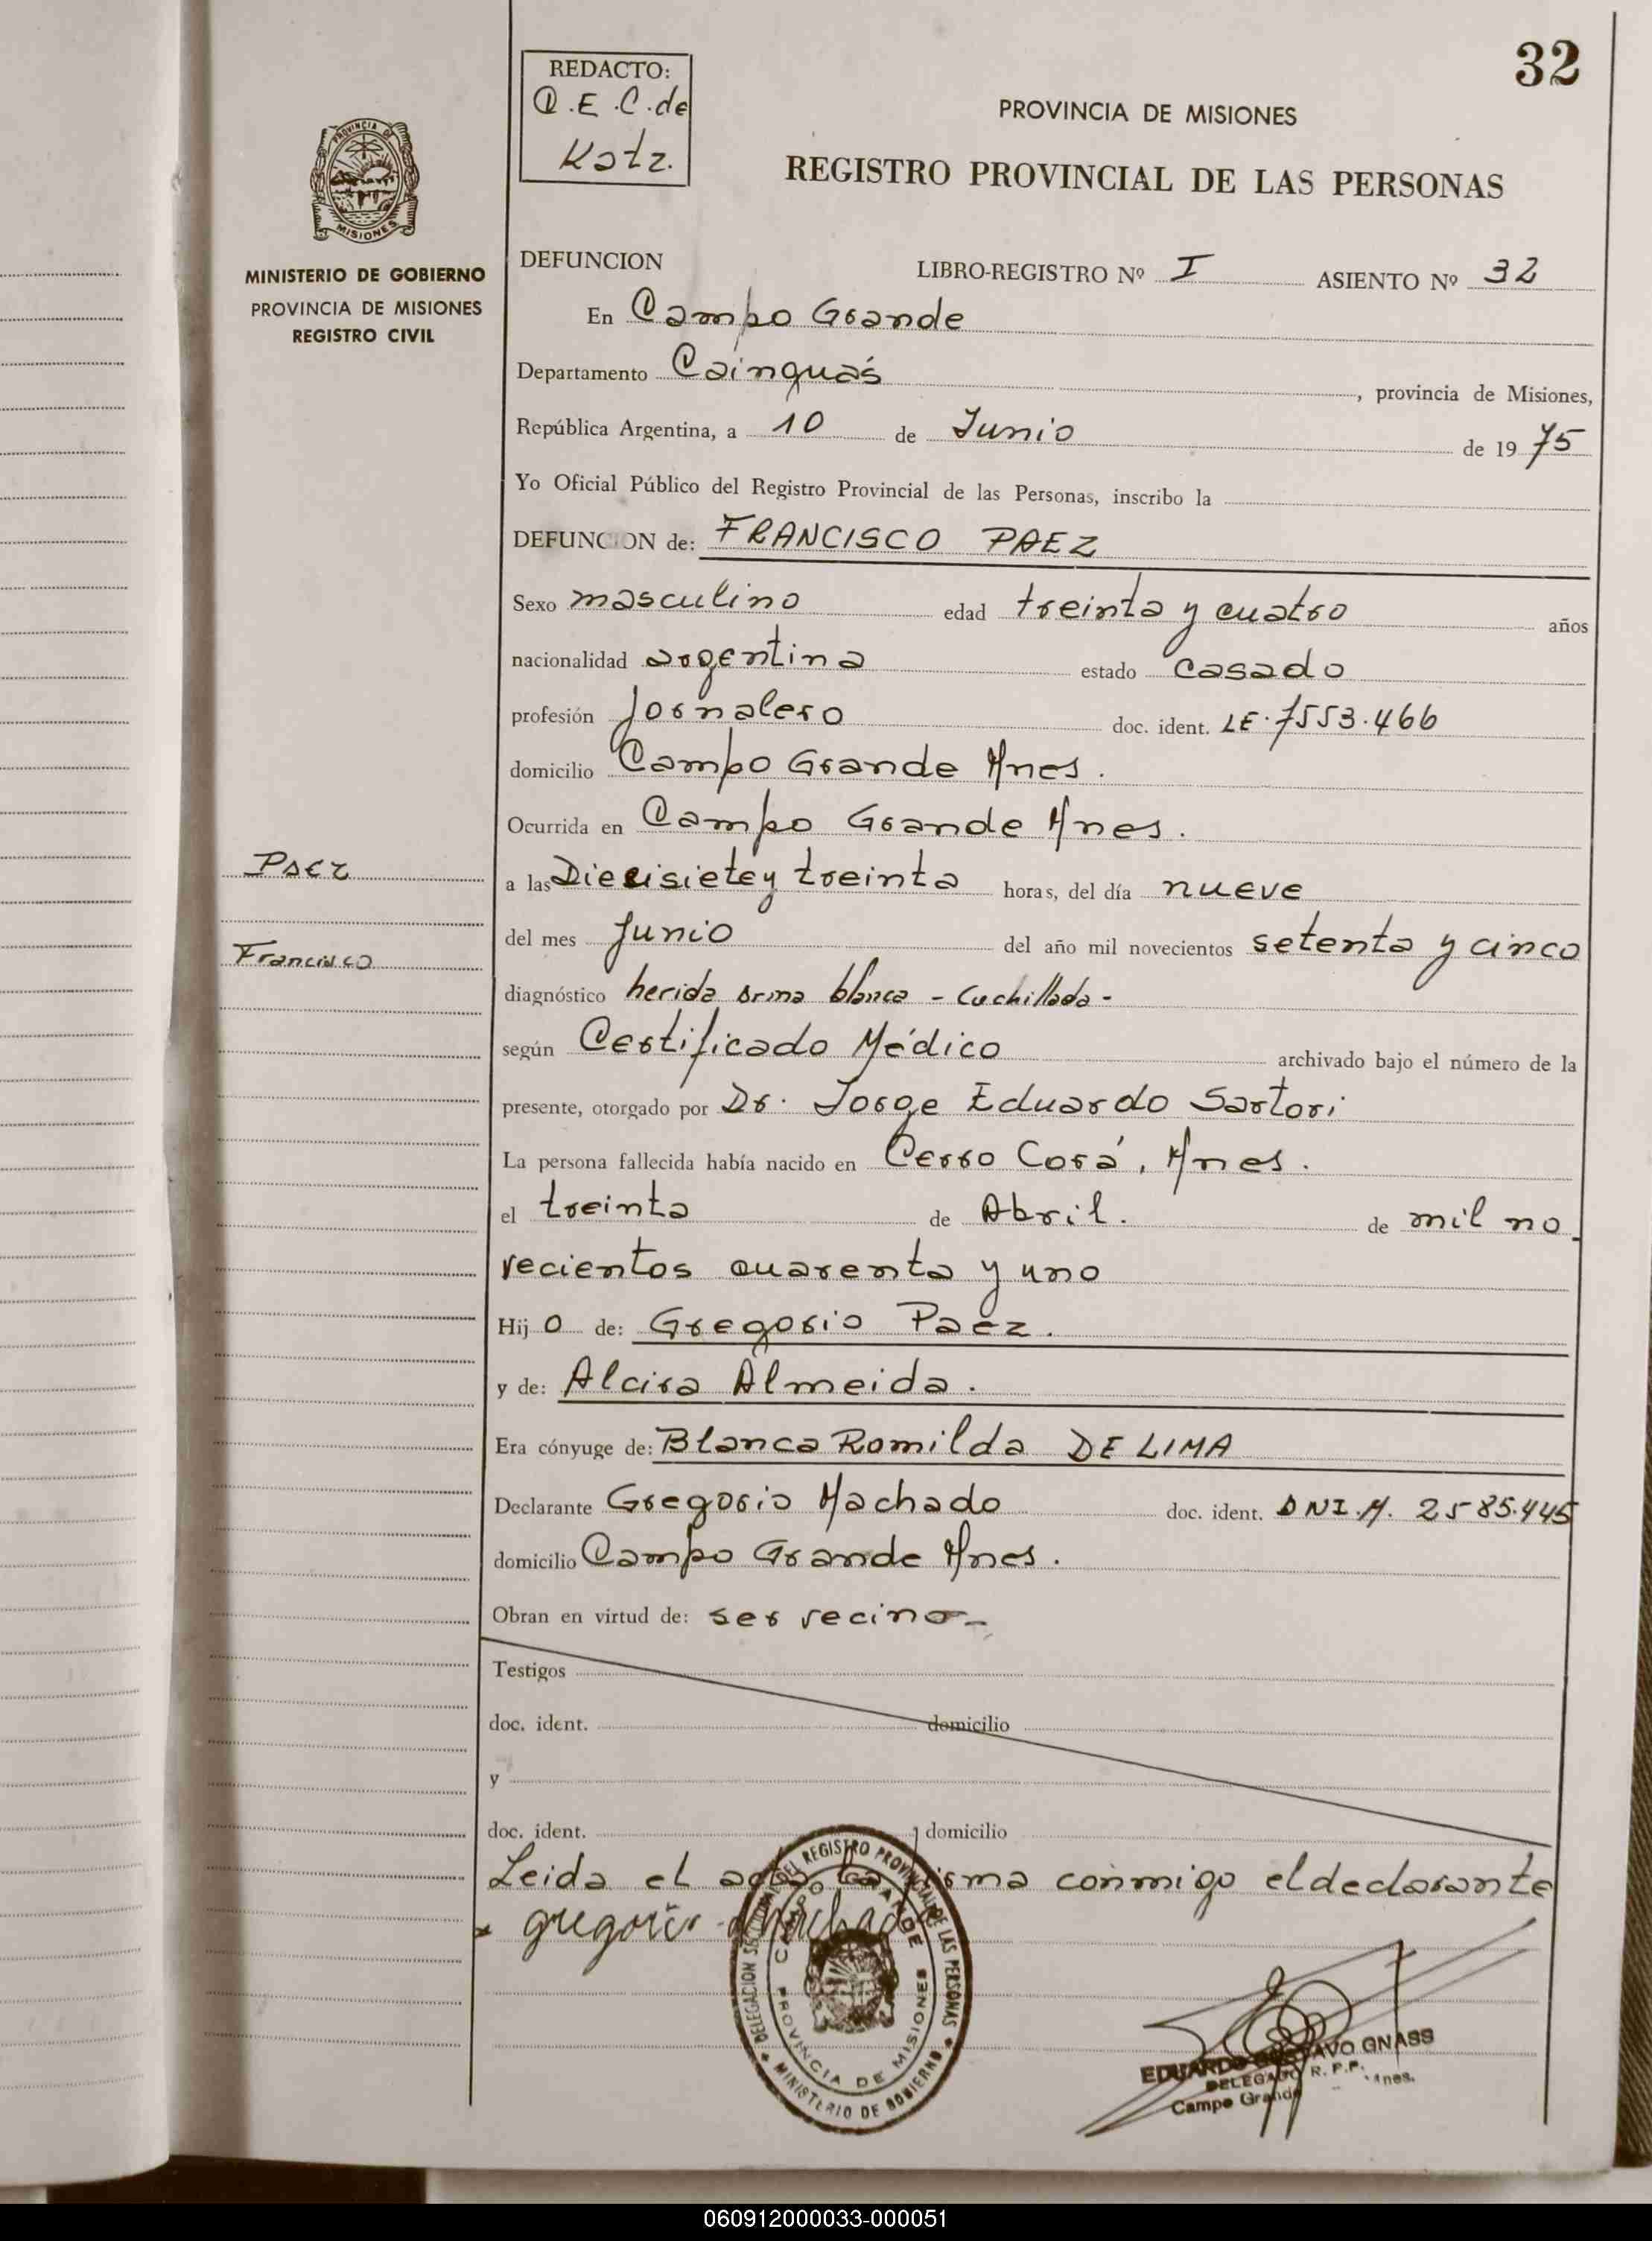 32
REDACTO:
C.E.C.de
Katz.
PROVINCIA DE MISIONES
REGISTRO PROVINCIAL DE LAS PERSONAS
PROVINCIA DE
MISIONES
MINISTERIO DE GOBIERNO
PROVINCIA DE MISIONES
REGISTRO CIVIL
DEFUNCION LIBRO-REGISTRO Nº I ASIENTO Nº 32
En Campo Grande
Departamento Cainguás, provincia de Misiones,
República Argentina, a 10 de Junio de 1975
Yo Oficial Público del Registro Provincial de las Personas, inscribo la
DEFUNCION de: FRANCISCO PAEZ
Sexo masculino edad treinta y cuatro años
nacionalidad argentina estado casado
profesión Jornalero doc. ident. LE.7553.466
domicilio Campo Grande Mnes.
Ocurrida en Campo Grande Mnes.
Paez
a las Diecisiete y treinta horas, del día nueve
Francisco
del mes Junio del año mil novecientos setenta y cinco
diagnóstico herida arma blanca - Cuchillada -
según Certificado Médico archivado bajo el número de la
presente, otorgado por Dr. Jorge Eduardo Sartori
La persona fallecida había nacido en Cerro Corá, Mnes.
el treinta de Abril. de mil no_
vecientos cuarenta y uno
Hijo de: Gregorio Paez.
y de: Alcira Almeida.
Era cónyuge de: Blanca Romilda DE LIMA
Declarante Gregorio Machado doc. ident. DNI.M. 2585.445
domicilio Campo Grande Mnes.
Obran en virtud de: ser vecino-
Testigos
doc. ident. domicilio
y
doc. ident. domicilio
Leida el acta la firma conmigo el declarante
gregorio Machado
DELEGACION SECCIONAL DEL REGISTRO PROVINCIAL DE LAS PERSONAS
CAMPO GRANDE
PROVINCIA DE MISIONES
MINISTERIO DE GOBIERNO
EDUARDO GUSTAVO GNASS
DELEGADO R. P. P.
Campo Grande Mnes.
060912000033-000051